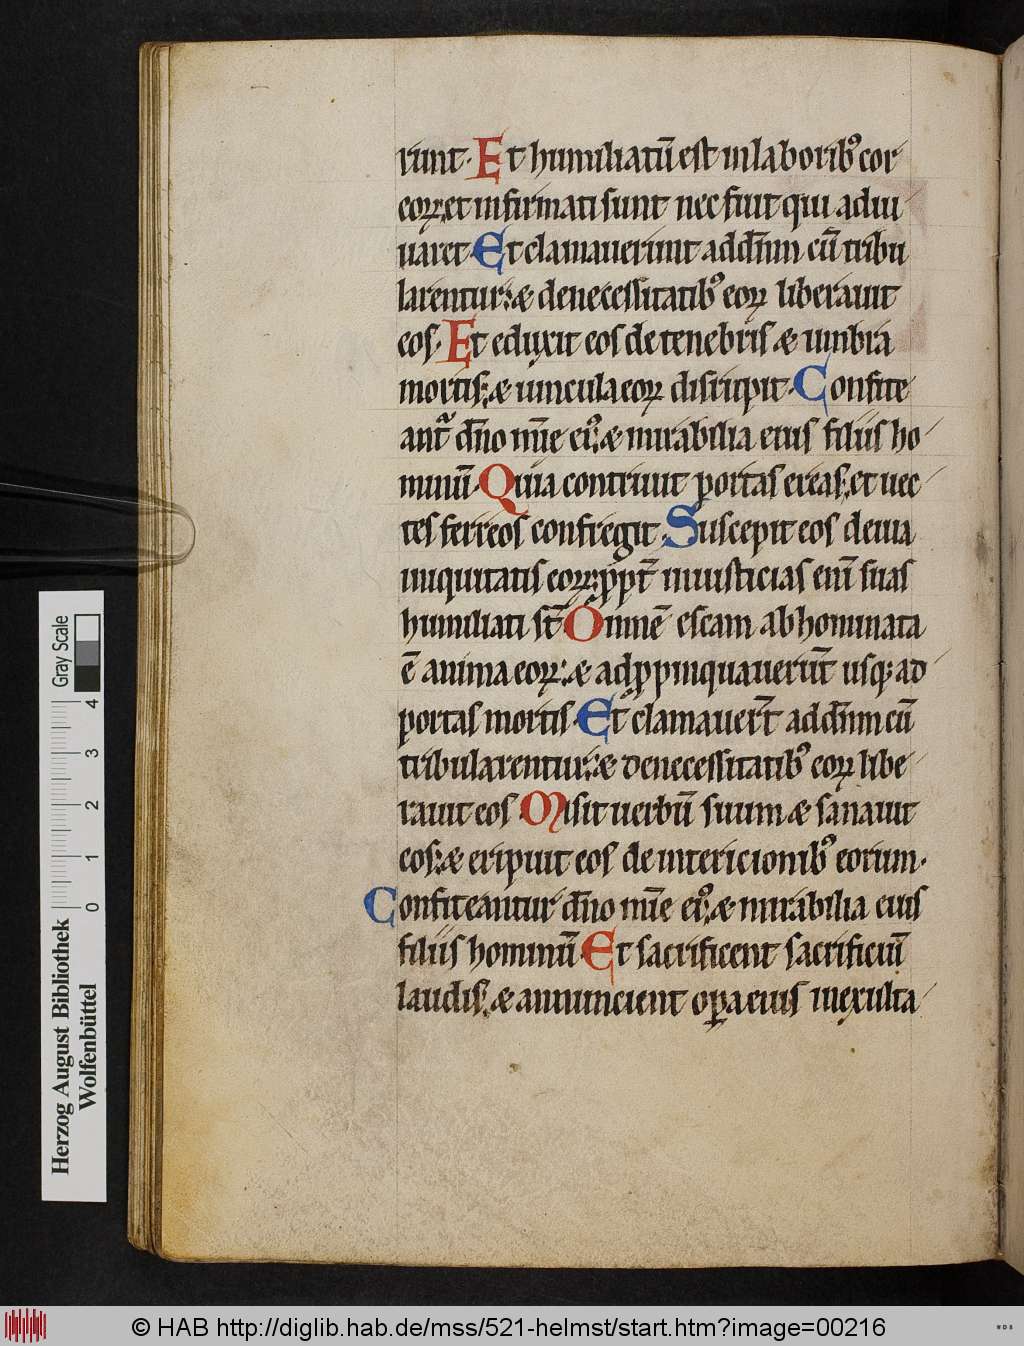 runt. Et humiliatū est in laborib⁹ cor
eoꝝ et infirmati sunt nec fuit qui adiu
uaret. Et clamauerunt ad dn̄m cū tribu
larentur: & de necessitatib⁹ eoꝝ liberauit
eos. Et eduxit eos de tenebris & umbra
mortis: & uincula eoꝝ disrupit. Confite
ant᷑ dn̄o mīe ei⁹: & mirabilia eius filiis ho
minū. Quia contriuit portas ereas: et uec
tes ferreos confregit. Suscepit eos de uia
iniquitatis eoꝝ: ꝓpt̄ iniusticias enī suas
humiliati st̄. Omnē escam abhominata
ē anima eoꝝ: & adꝓpinquauerūt usq; ad
portas mortis. Et clamauer̄t ad dn̄m cū
tribularentur: & de necessitatib⁹ eoꝝ libe
rauit eos. Misit uerbū suum & sanauit
eos: & eripuit eos de intericionib⁹ eorum.
Confiteantur dn̄o mīe ei⁹: & mirabilia eius
filiis hominū. Et sacrificent sacrificiū
laudis: & annuncient oꝑa eius in exulta
Herzog August Bibliothek
Wolfenbüttel
Gray Scale
0 1 2 3 4
© HAB http://diglib.hab.de/mss/521-helmst/start.htm?image=00216